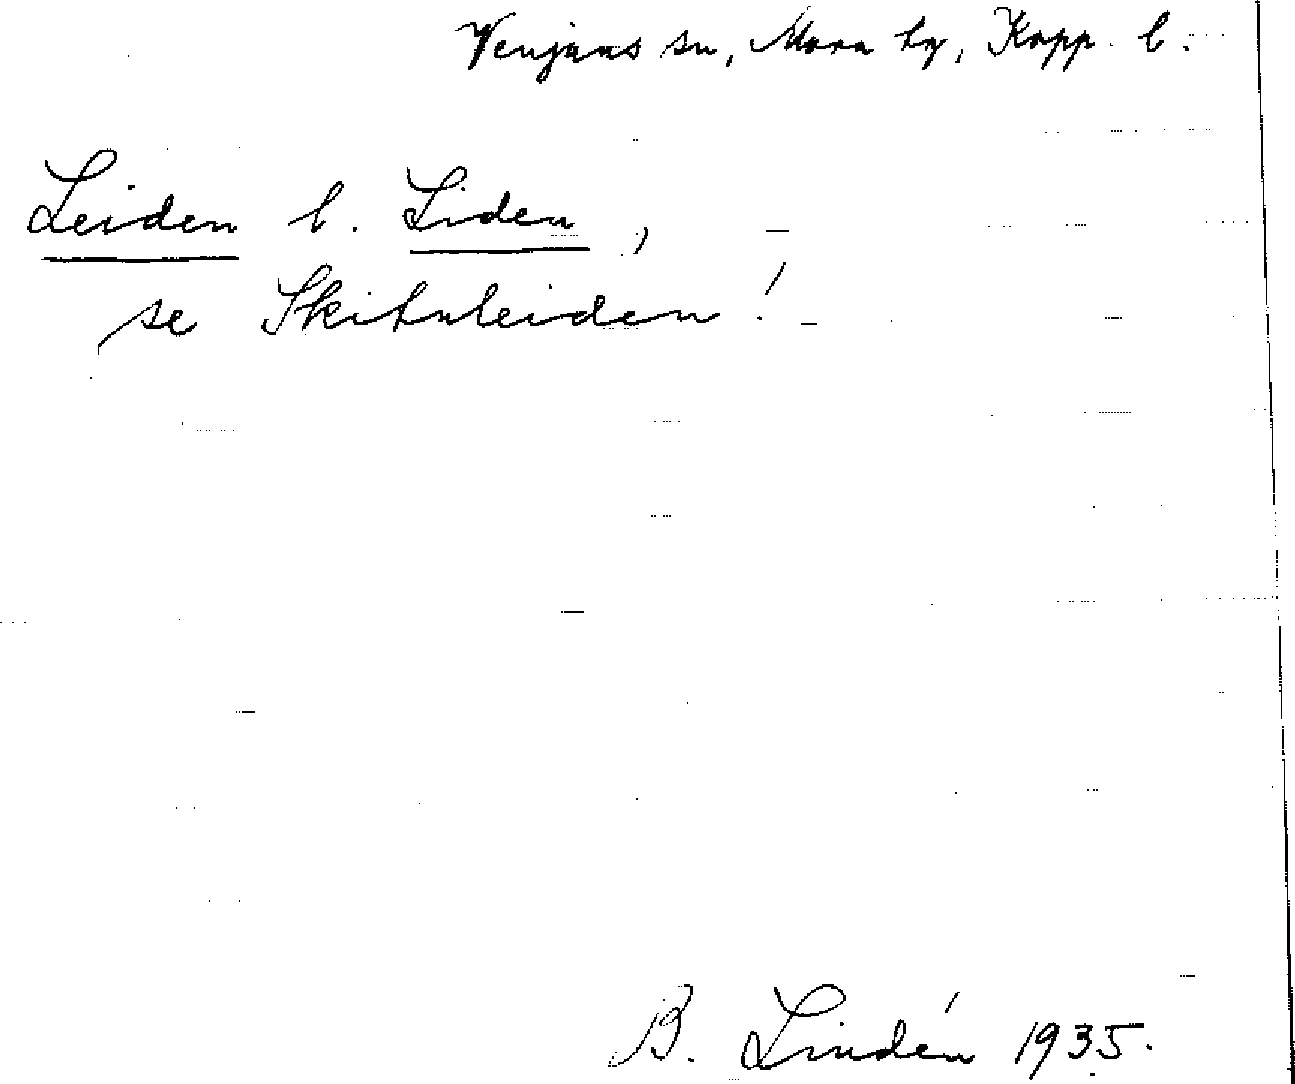 Venjans sn, Mora tg, Kopp. l.
Leiden l. Liden,
se Skitnleiden!
B. Lindén 1935.